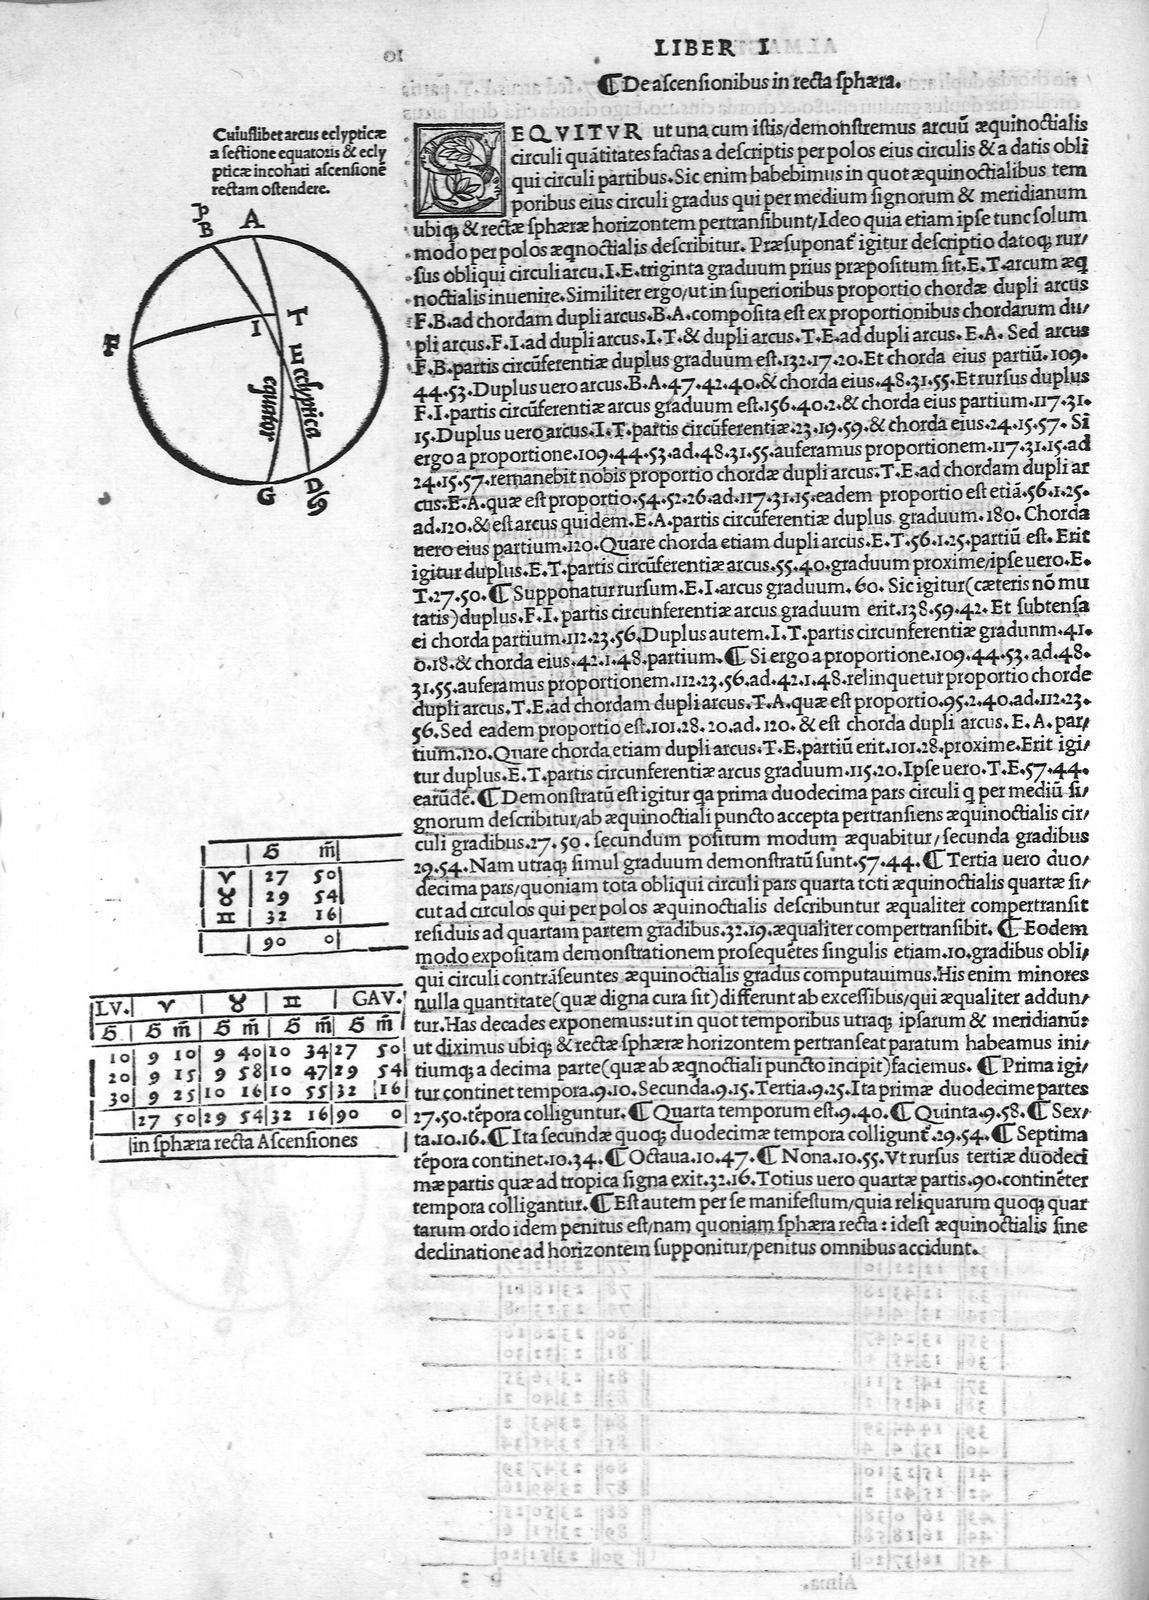 LIBER I
¶ De ascensionibus in recta sphæra.
Cuiuslibet arcus eclypticæ
a sectione equatoris & ecly
pticæ incohati ascensionē
rectam ostendere.
P
B
A
F
I
T
E
ecliptica
equator
G
D
SEQVITVR ut una cum istis/demonstremus arcuū æquinoctialis
circuli quātitates factas a descriptis per polos eius circulis & a datis obli
qui circuli partibus. Sic enim babebimus in quot æquinoctialibus tem
poribus eius circuli gradus qui per medium signorum & meridianum
ubiq; & rectæ sphæræ horizontem pertransibunt/Ideo quia etiam ipse tunc solum
modo per polos æqnoctialis describitur. Præsuponat igitur descriptio datoq; rur/
sus obliqui circuli arcu.I.E.triginta graduum prius præpositum sit.E.T.arcum æq
noctialis inuenire. Similiter ergo/ut in superioribus proportio chordæ dupli arcus
F.B.ad chordam dupli arcus.B.A.composita est ex proportionibus chordarum du/
pli arcus.F.I.ad dupli arcus.I.T.& dupli arcus.T.E.ad dupli arcus.E.A. Sed arcus
F.B.partis circūferentiæ duplus graduum est.132.17.20.Et chorda eius partiū.109.
44.53.Duplus uero arcus.B.A.47.42.40.& chorda eius.48.31.55.Et rursus duplus
F.I.partis circūferentiæ arcus graduum est.156.40.2.& chorda eius partium.117.31.
15.Duplus uero arcus.I.T.partis circūferentiæ.23.19.59.& chorda eius.24.15.57. Si
ergo a proportione.109.44.53.ad.48.31.55.auferamus proportionem.117.31.15.ad
24.15.57.remanebit nobis proportio chordæ dupli arcus.T.E.ad chordam dupli ar
cus.E.A.quæ est proportio.54.52.26.ad.117.31.15.eadem proportio est etiā.56.1.25.
ad.120.& est arcus quidem.E.A.partis circūferentiæ duplus graduum.180. Chorda
uero eius partium.120.Quare chorda etiam dupli arcus.E.T.56.1.25.partiū est. Erit
igitur duplus.E.T.partis circūferentiæ arcus.55.40.graduum proxime/ipse uero.E.
T.27.50.¶ Supponatur rursum.E.I.arcus graduum.60. Sic igitur(cæteris nō mu
tatis)duplus.F.I.partis circunferentiæ arcus graduum erit.138.59.42. Et subtensa
ei chorda partium.112.23.56.Duplus autem.I.T.partis circunferentiæ gradunm.41.
0.18.& chorda eius.42.1.48.partium.¶ Si ergo a proportione.109.44.53.ad.48.
31.55.auferamus proportionem.112.23.56.ad.42.1.48.relinquetur proportio chorde
dupli arcus.T.E.ad chordam dupli arcus.T.A.quæ est proportio.95.2.40.ad.112.23.
56.Sed eadem proportio est.101.28.20.ad.120.& est chorda dupli arcus.E.A.par/
tium.120.Quare chorda etiam dupli arcus.T.E.partiū erit.101.28.proxime.Erit igi/
tur duplus.E.T.partis circunferentiæ arcus graduum.115.20.Ipse uero.T.E.57.44.
earūdē.¶ Demonstratū est igitur qa prima duodecima pars circuli q per mediū si/
gnorum describitur/ab æquinoctiali puncto accepta pertransiens æquinoctialis cir/
culi gradibus.27.50.secundum positum modum æquabitur/secunda gradibus
29.54.Nam utraq; simul graduum demonstratū sunt.57.44.¶ Tertia uero duo/
decima pars/quoniam tota obliqui circuli pars quarta toti æquinoctialis quartæ si/
cut ad circulos qui per polos æquinoctialis describuntur æqualiter compertransit
residuis ad quartam partem gradibus.32.19.æqualiter compertransibit.¶ Eodem
modo expositam demonstrationem prosequētes singulis etiam.10.gradibus obli/
qui circuli contrāseuntes æquinoctialis gradus computauimus.His enim minores
nulla quantitate(quæ digna cura sit)differunt ab excessibus/qui æqualiter addun/
tur.Has decades exponemus:ut in quot temporibus utraq; ipsarum & meridianū:
ut diximus ubiq; & rectæ sphæræ horizontem pertranseat paratum habeamus ini/
tiumq; a decima parte(quæ ab æqnoctiali puncto incipit)faciemus. ¶ Prima igi/
tur continet tempora.9.10. Secunda.9.15.Tertia.9.25.Ita primæ duodecime partes
27.50.tēpora colliguntur.¶ Quarta temporum est.9.40.¶ Quinta.9.58.¶ Sex/
ta.10.16.¶ Ita secundæ quoq; duodecimæ tempora colligunt.29.54.¶ Septima
tēpora continet.10.34.¶ Octaua.10.47.¶ Nona.10.55.Vt rursus tertiæ duodeci
mæ partis quæ ad tropica signa exit.32.16.Totius uero quartæ partis.90.continēter
tempora colligantur.¶ Est autem per se manifestum/quia reliquarum quoq; quar
tarum ordo idem penitus est/nam quoniam sphæra recta:idest æquinoctialis sine
declinatione ad horizontem supponitur/penitus omnibus accidunt.
G m̄
♈ 27 50
♉ 29 54
♊ 32 16
90 0
LV. ♈ ♉ ♊ GAV.
G G m̄ G m̄ G m̄ G m̄
10 9 10 9 40 10 34 27 50
20 9 15 9 58 10 47 29 54
30 9 25 10 16 10 55 32 16
27 50 29 54 32 16 90 0
in sphæra recta Ascensiones